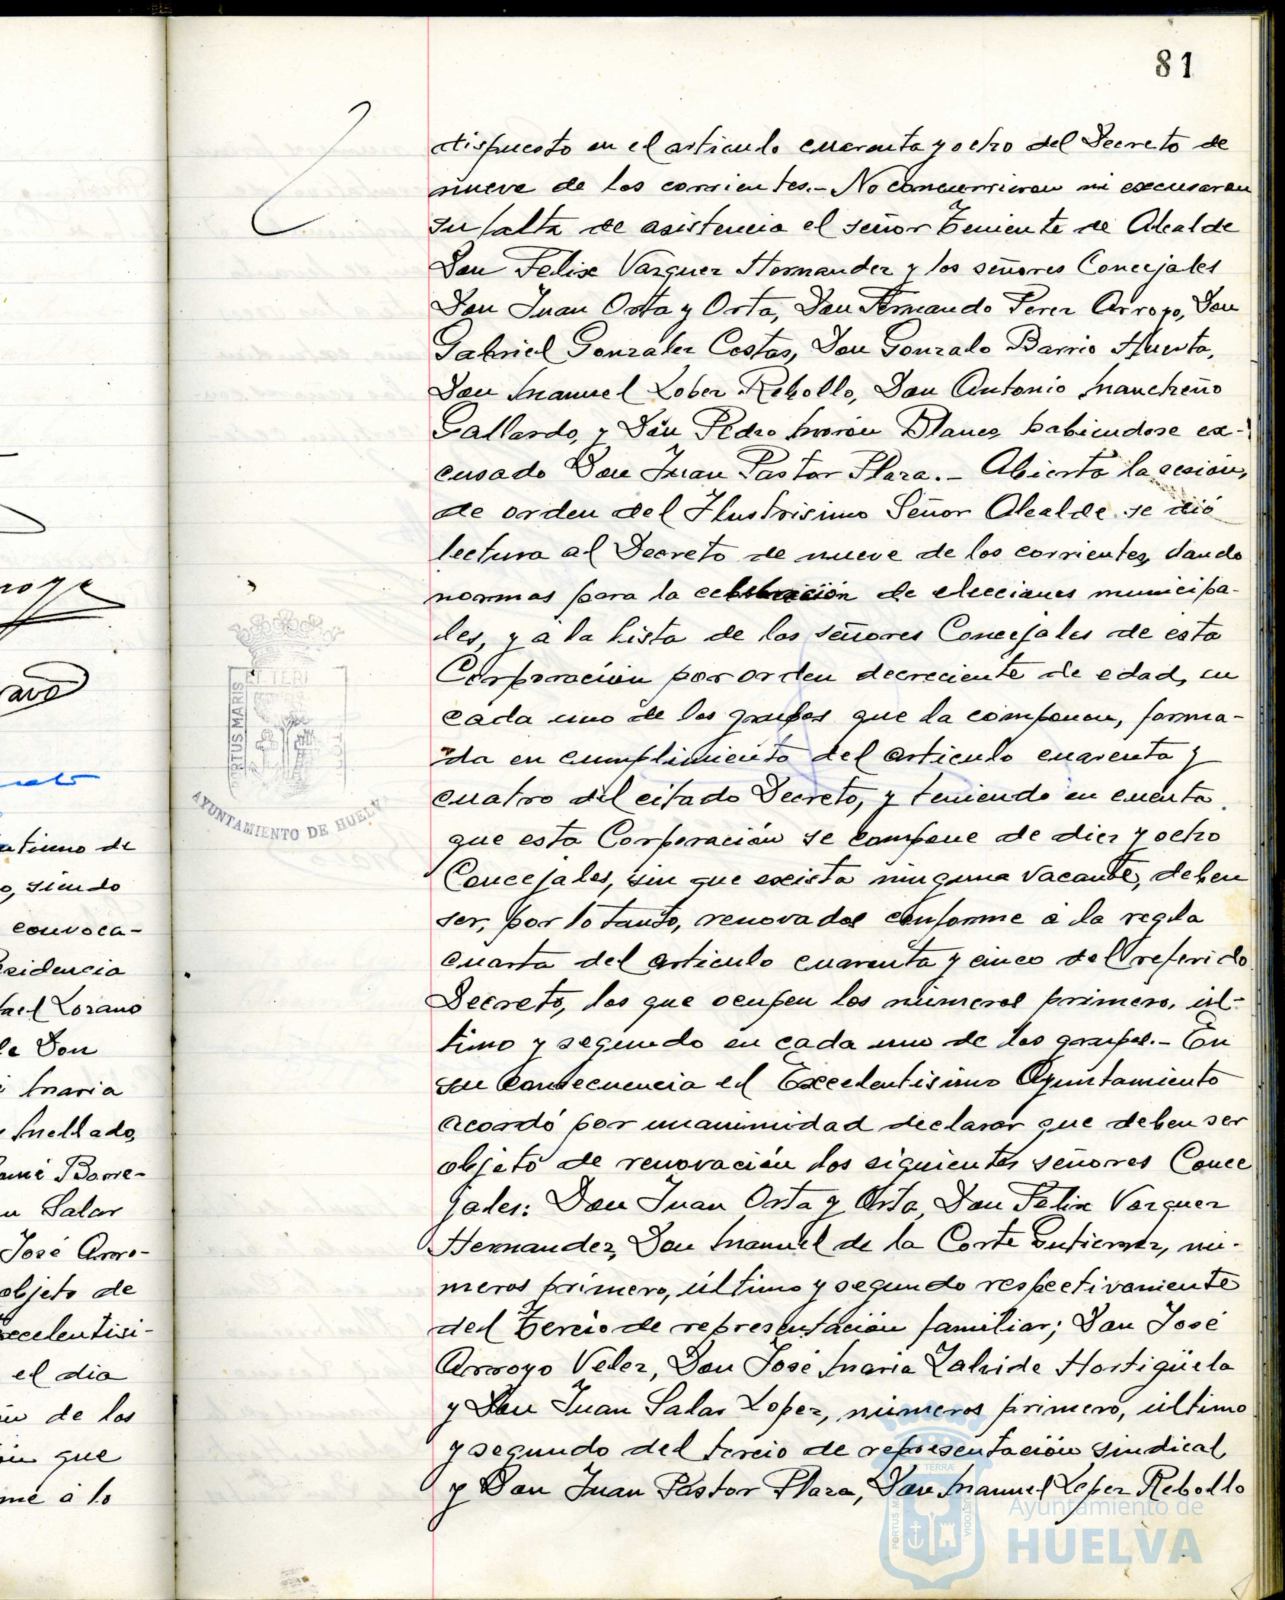 81
dispuesto en el articulo cuarenta y ocho del Decreto de
nueve de los corrientes.- No concurrieron ni excusaron
su falta de asistencia el señor Teniente de Alcalde
Don Felix Vazquez Hernandez y los señores Concejales
Don Juan Orta y Orta, Don Fernando Perez Arroyo, Don
Gabriel Gonzalez Costas, Don Gonzalo Barrio Huerta,
Don Manuel Lobez Rebollo, Don Antonio Mancheño
Gallardo, y Don Pedro Morón Blanco habiendose ex-
cusado Don Juan Pastor Plaza.- Abierta la sesión,
de orden del Ilustrisimo Señor Alcalde se dió
lectura al Decreto de nueve de los corrientes, dando
normas para la celebración de elecciones municipa-
les, y a la lista de los señores Concejales de esta
Corporación por orden decreciente de edad, en
cada uno de los grupos que la componen, forma-
da en cumplimiento del articulo cuarenta y
cuatro del citado Decreto, y teniendo en cuenta
que esta Corporación se compone de diez y ocho
Concejales, sin que exista ninguna vacante, deben
ser, por lo tanto, renovados conforme á la regla
cuarta del articulo cuarenta y cinco del referido
Decreto, los que ocupen los números primero, úl-
timo y segundo en cada uno de los grupos.- En
su consecuencia el Excelentisimo Ayuntamiento
acordó por unanimidad declarar que deben ser
objeto de renovación los siguientes señores Conce
jales: Don Juan Orta y Orta, Don Felix Vazquez
Hernandez, Don Manuel de la Corte Gutierrez, nú-
meros primero, último y segundo respectivamente
del Tercio de representación familiar; Don José
Arroyo Velez, Don José Maria Zalvide Hortigüela
y Don Juan Salas Lopez, números primero, último
y segundo del tercio de representación sindical
y Don Juan Pastor Plaza, Don Manuel Lopez Rebollo
PORTUS MARIS ET TERR
AYUNTAMIENTO DE HUELV
atismo de
o, siendo
convoca-
esidencia
fael Lozano
le Don
Maria
Mellado,
Barre-
Salas
José Arro-
objeto de
xcelentisi-
el dia
de los
que
me á lo
Ayuntamiento de
HUELVA